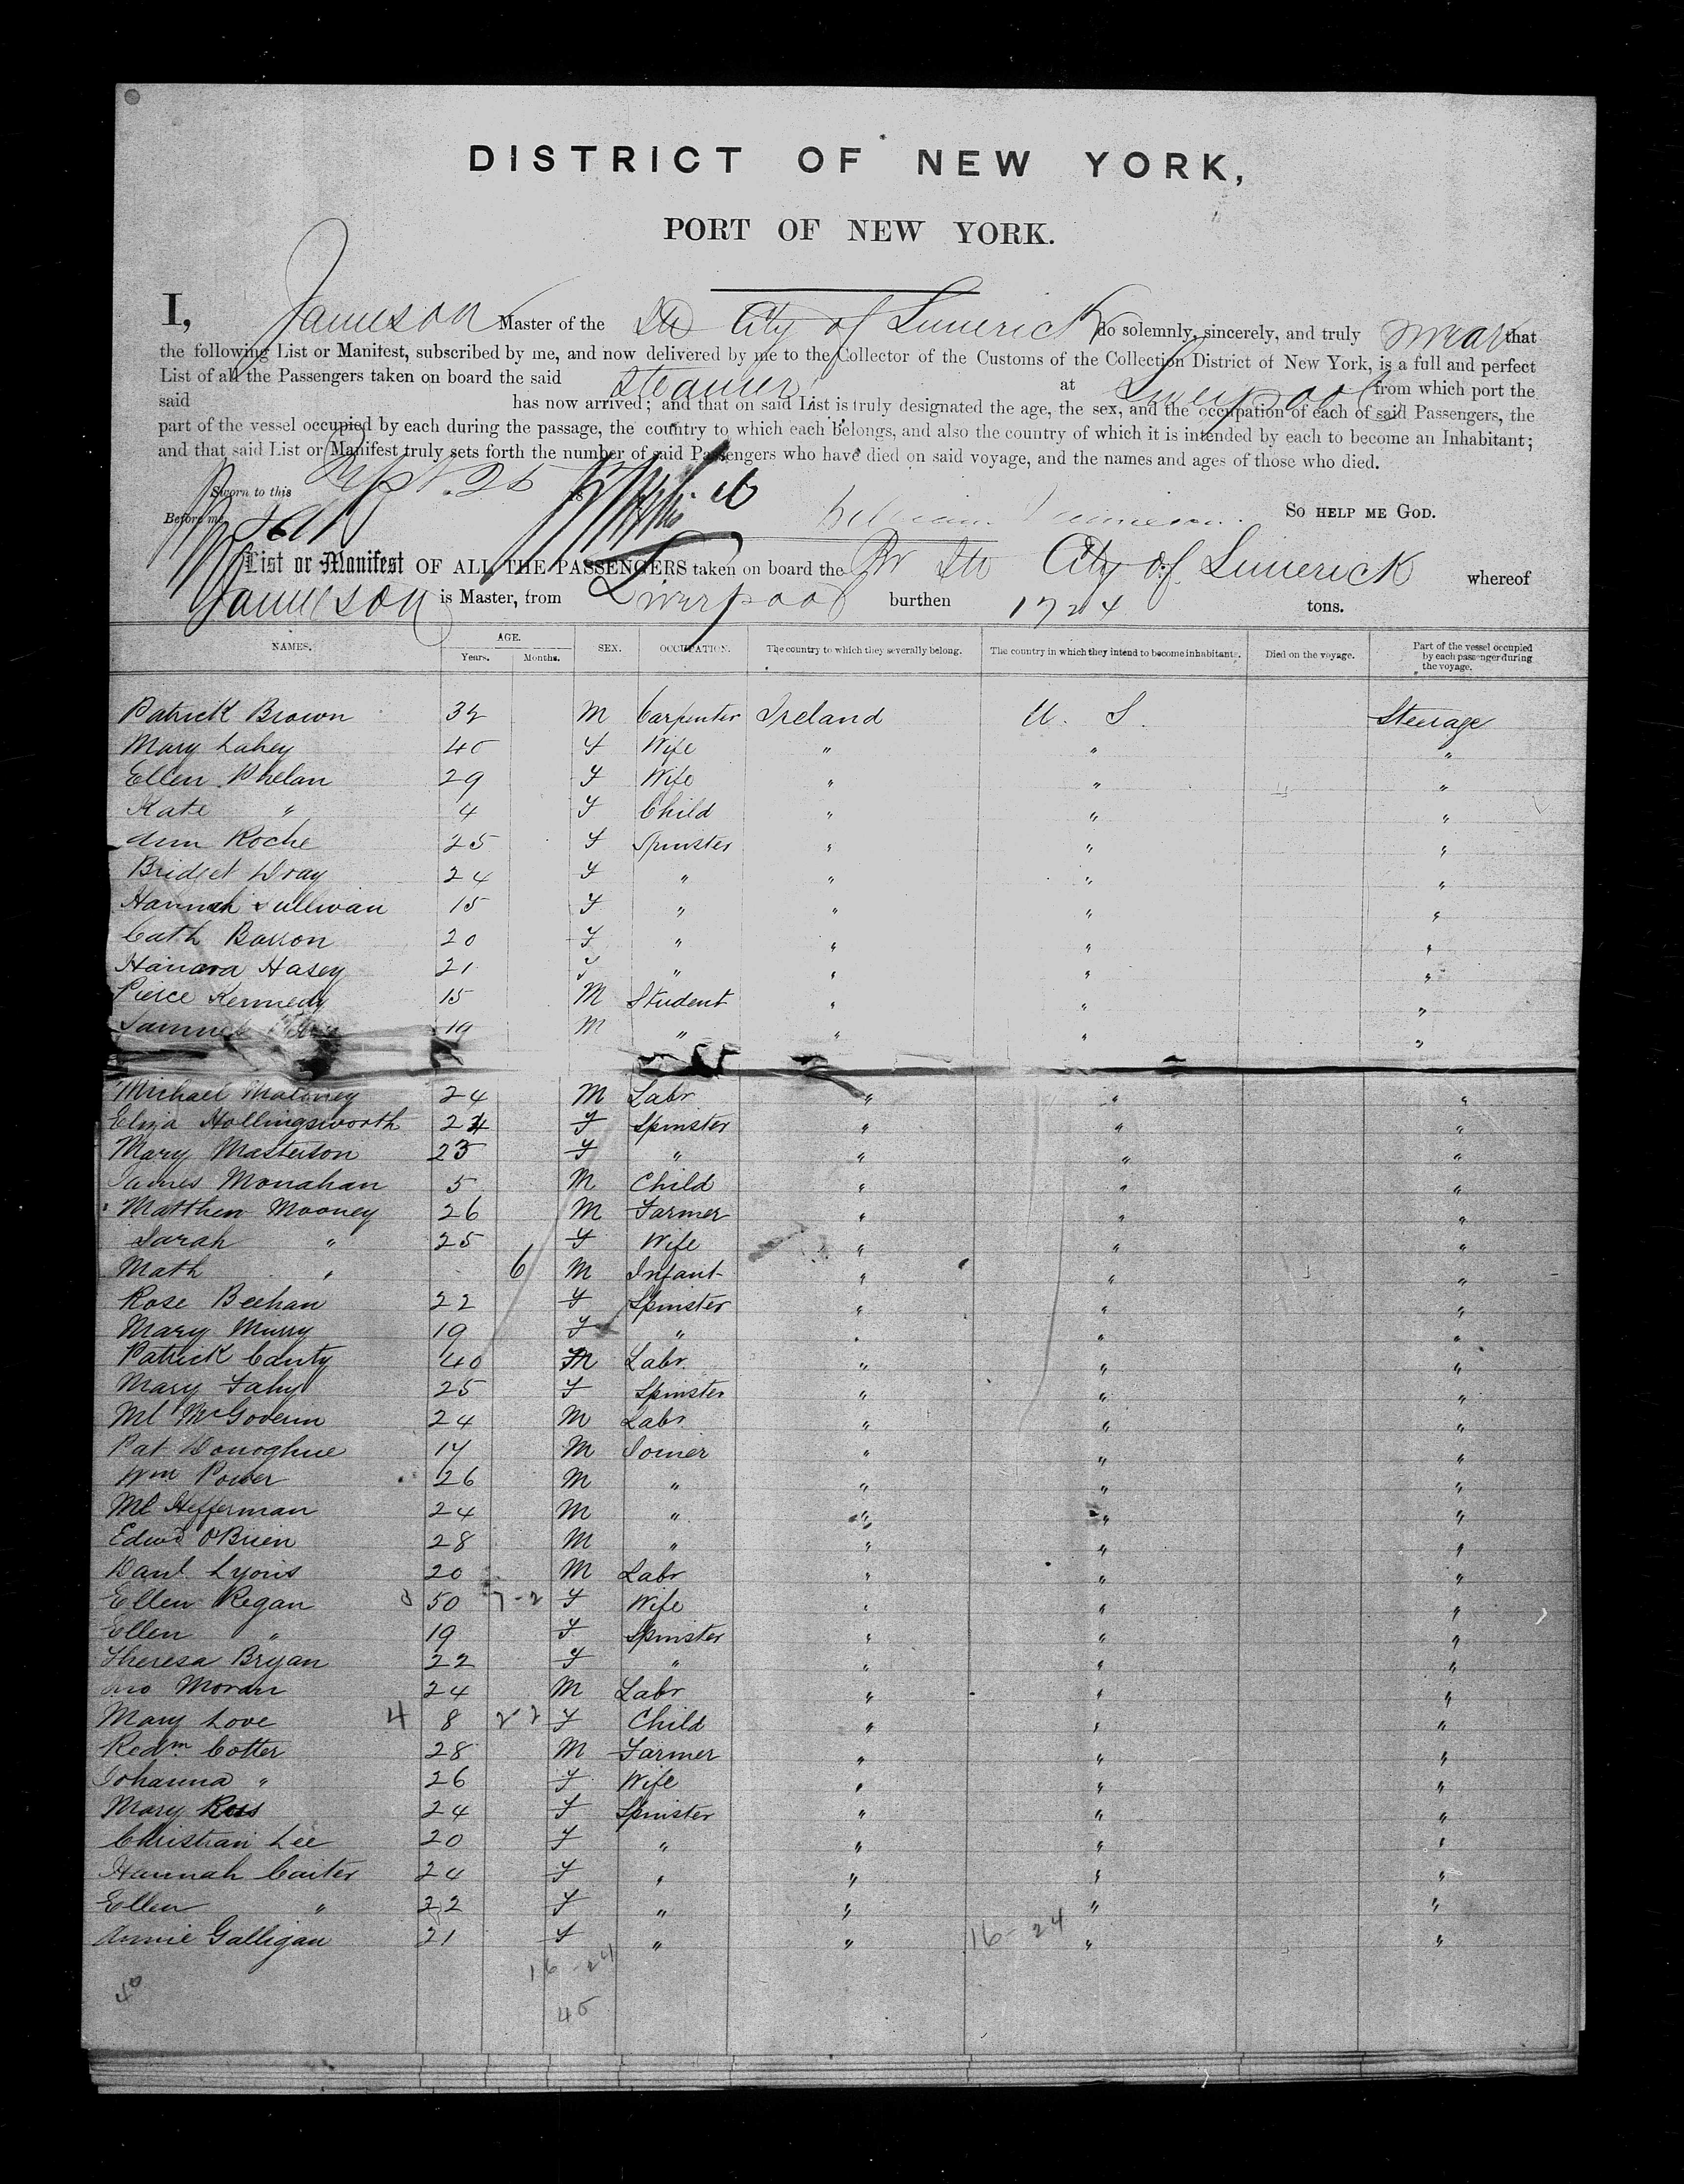 DISTRICT OF NEW YORK,
PORT OF NEW YORK.
I, Jameson Master of the Str City of Limerick do solemnly, sincerely, and truly swear that
the following List or Manifest, subscribed by me, and now delivered by me to the Collector of the Customs of the Collection District of New York, is a full and perfect
List of all the Passengers taken on board the said Steamer at Liverpool from which port the
said has now arrived; and that on said List is truly designated the age, the sex, and the occupation of each of said Passengers, the
part of the vessel occupied by each during the passage, the country to which each belongs, and also the country of which it is intended by each to become an Inhabitant;
and that said List or Manifest truly sets forth the number of said Passengers who have died on said voyage, and the names and ages of those who died.
Sworn to this Sept. 25
Before me William Jameson. SO HELP ME GOD.
List or Manifest OF ALL THE PASSENGERS taken on board the Br Str City of Limerick whereof
Jameson is Master, from Liverpool burthen 1724 tons.
NAMES. AGE. Years. Months. SEX. OCCUPATION. The country to which they severally belong. The country in which they intend to become inhabitants. Died on the voyage. Part of the vessel occupied by each passenger during the voyage.
Patrick Brown 32 M Carpenter Ireland U. S. Steerage
Mary Lahey 40 F Wife " " "
Ellen Phelan 29 F Wife " " "
Kate " 4 F Child " " "
Ann Roche 25 F Spinster " " "
Bridget Dray 24 F " " " "
Hannah Sullivan 15 F " " " "
Cath Barron 20 F " " " "
Hanora Hasey 21 F " " " "
Pierce Kennedy 15 M Student " " "
Samuel 19 M " " " "
Michael Maloney 24 M Labr " " "
Eliza Hollingsworth 24 F Spinster " " "
Mary Masterson 23 F " " " "
James Monahan 5 M Child " " "
Matthew Mooney 26 M Farmer " " "
Sarah " 25 F Wife " " "
Math " 6 M Infant " " "
Rose Beehan 22 F Spinster " " "
Mary Murry 19 F " " " "
Patrick Canty 40 M Labr. " " "
Mary Fahy 25 F Spinster " " "
Ml McGoverin 24 M Labr " " "
Pat Donoghue 17 M Joiner " " "
Wm Power 26 M " " " "
Ml Hefferman 24 M " " " "
Edwd O'Brien 28 M " " " "
Danl. Lyons 20 M Labr " " "
Ellen Regan 50 7-2 F Wife " " "
Ellen " 19 F Spinster " " "
Theresa Bryan 22 F " " " "
Jno Moran 24 M Labr " " "
Mary Love 4 8 22 F Child " " "
Redm. Cotter 28 M Farmer " " "
Johanna " 26 F Wife " " "
Mary Ross 24 F Spinster " " "
Christian Lee 20 F " " " "
Hannah Caiter 24 F " " " "
Ellen " 22 F " " " "
Annie Galligan 21 F " " " "
16-24
16-24
40
40